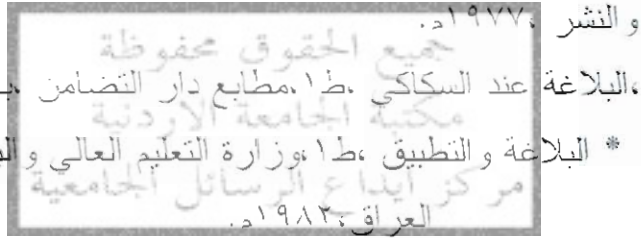 و النشر ،١٩٧٧م.
جميع الحقوق محفوظة
،البلاغة عند السكاكي ،ط١،مطابع دار التضامن
مكتبة الجامعة الاردنية
* البلاغة و التطبيق ،ط١،وزارة التعليم العالي و
مركز ايداع الرسائل الجامعية
العراق،١٩٨٢م.